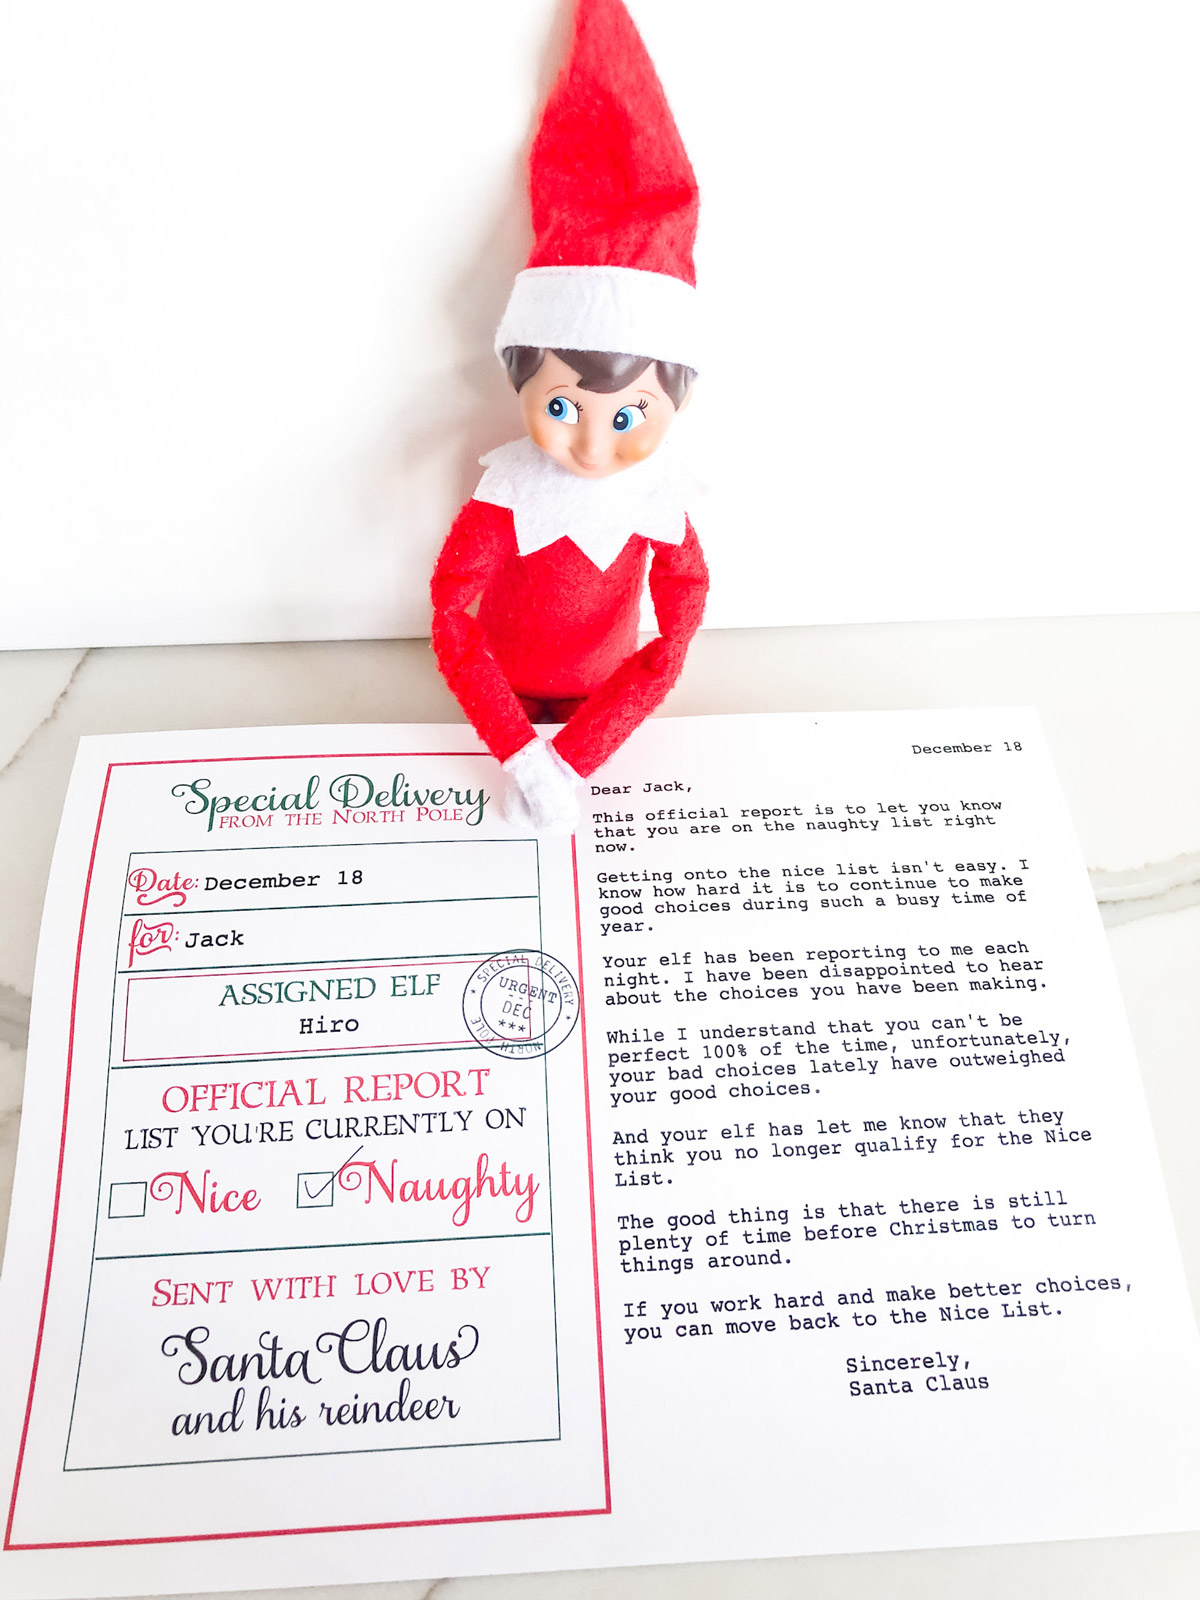 Special Delivery
FROM THE NORTH POLE
Date: December 18
for: Jack
ASSIGNED ELF
Hiro
SPECIAL DELIVERY
URGENT
DEC
***
NORTH POLE
OFFICIAL REPORT
LIST YOU'RE CURRENTLY ON
Nice Naughty
SENT WITH LOVE BY
Santa Claus
and his reindeer
December 18
Dear Jack,
This official report is to let you know
that you are on the naughty list right
now.
Getting onto the nice list isn't easy. I
know how hard it is to continue to make
good choices during such a busy time of
year.
Your elf has been reporting to me each
night. I have been disappointed to hear
about the choices you have been making.
While I understand that you can't be
perfect 100% of the time, unfortunately,
your bad choices lately have outweighed
your good choices.
And your elf has let me know that they
think you no longer qualify for the Nice
List.
The good thing is that there is still
plenty of time before Christmas to turn
things around.
If you work hard and make better choices,
you can move back to the Nice List.
Sincerely,
Santa Claus